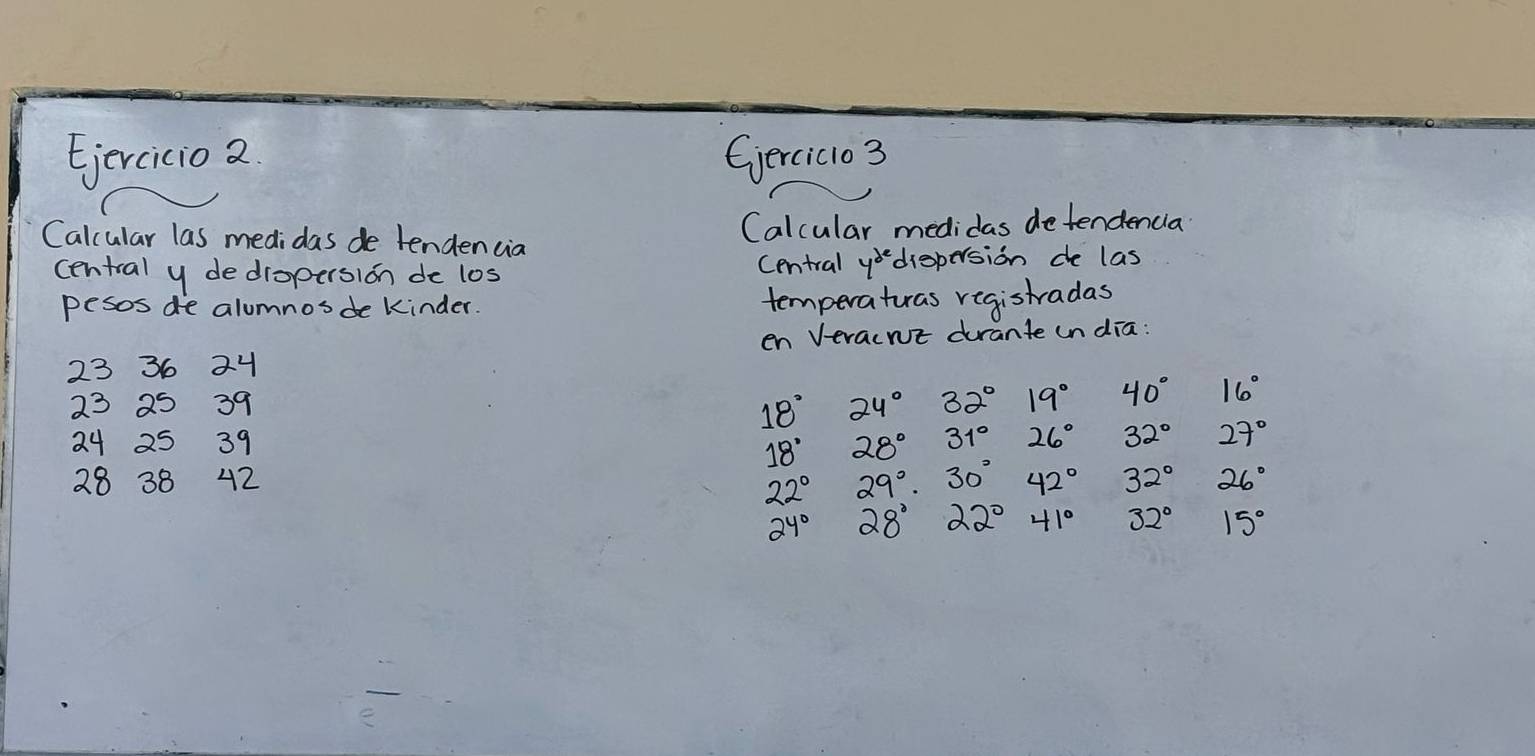 Ejercicio 2.
Calcular las medidas de tendencia
central y de dispersión de los
pesos de alumnos de Kinder.
23 36 24
23 25 39
24 25 39
28 38 42
Ejercicio 3
Calcular medidas de tendencia
central y de dispersión de las
temperaturas registradas
en Veracruz durante un día:
18° 24° 32° 19° 40° 16°
18° 28° 31° 26° 32° 27°
22° 29°. 30° 42° 32° 26°
24° 28° 22° 41° 32° 15°